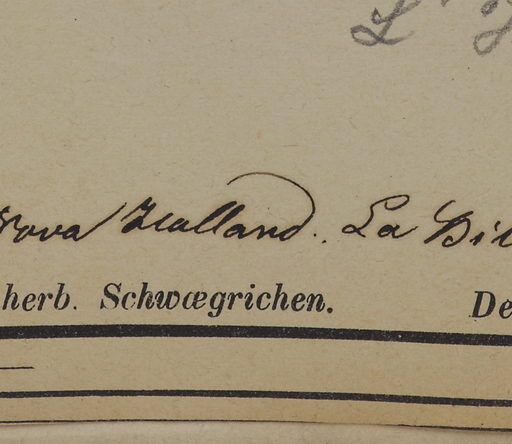 Nova Zealland. La Bil
herb. Schwægrichen. De